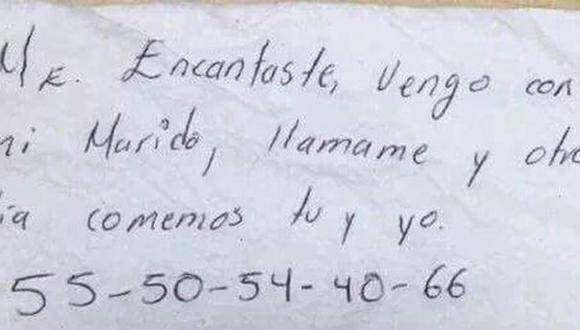 Me. Encantaste, Vengo con
mi Marido, llamame y otro
día comemos tu y yo.
55-50-54-40-66